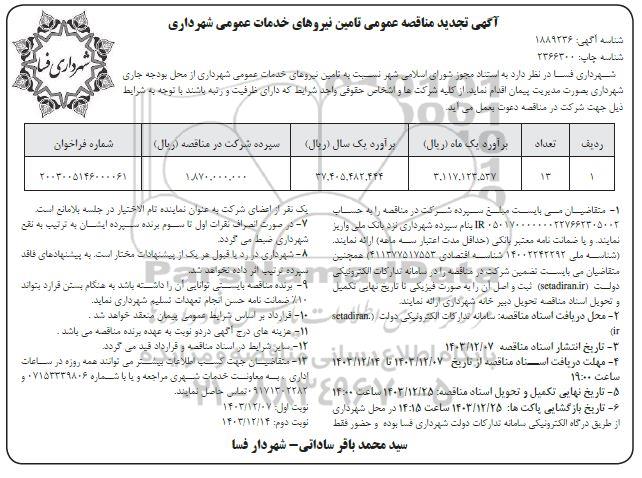 آگهی تجدید مناقصه عمومی تامین نیروهای خدمات عمومی شهرداری
شناسه آگهی: ۱۸۸۹۲۳۶
شناسه چاپ: ۲۳۶۶۳۰۰
شهرداری فسا
شهرداری فسا در نظر دارد به استناد مجوز شورای اسلامی شهر نسبت به تامین نیروهای خدمات عمومی شهرداری از محل بودجه جاری
شهرداری بصورت مدیریت پیمان اقدام نماید. از کلیه شرکت ها و اشخاص حقوقی واجد شرایط که دارای ظرفیت و رتبه باشند با توجه به شرایط
ذیل جهت شرکت در مناقصه دعوت بعمل می آید.
ردیف تعداد برآورد یک ماه (ریال) برآورد یک سال (ریال) سپرده شرکت در مناقصه (ریال) شماره فراخوان
۱ ۱۳ ۳.۱۱۷.۱۲۳.۵۳۷ ۳۷.۴۰۵.۴۸۲.۴۴۴ ۱.۸۷۰.۰۰۰.۰۰۰ ۲۰۰۳۰۰۵۱۴۶۰۰۰۰۶۱
۱- متقاضیان می بایست مبلغ سپرده شرکت در مناقصه را به حساب
IR ۰۵۰۱۷۰۰۰۰۰۰۰۲۲۷۶۶۲۳۰۵۰۰۲ بنام سپرده شهرداری نزد بانک ملی واریز
نمایند. و یا ضمانت نامه معتبر بانکی (حداقل مدت اعتبار سه ماهه) ارائه نمایند.
(شناسه ملی ۱۴۰۰۲۲۴۲۲۹۲ شناسه اقتصادی ۴۱۱۳۷۷۵۱۷۵۵۳) همچنین
متقاضیان می بایست تضمین شرکت در مناقصه را در سامانه تدارکات الکترونیکی
دولت (setadiran.ir) ثبت و اصل آن را به صورت فیزیکی تا تاریخ نهایی تکمیل
و تحویل اسناد مناقصه تحویل دبیر خانه شهرداری ارائه نمایند.
۲- محل دریافت اسناد مناقصه: سامانه تدارکات الکترونیکی دولت/ (setadiran.
ir)
۳- تاریخ انتشار اسناد مناقصه ۱۴۰۳/۱۲/۰۷
۴- مهلت دریافت اسناد مناقصه از تاریخ ۱۴۰۳/۱۲/۰۷ تا ۱۴۰۳/۱۲/۱۴
ساعت ۱۹:۰۰
۵- تاریخ نهایی تکمیل و تحویل اسناد مناقصه: ۱۴۰۳/۱۲/۲۵ ساعت ۱۴:۰۰
۶- تاریخ بازگشایی پاکت ها: ۱۴۰۳/۱۲/۲۵ ساعت ۱۴:۱۵ در محل شهرداری
از طریق درگاه الکترونیکی سامانه تدارکات دولت شهرداری فسا بوده و حضور فقط
یک نفر از اعضای شرکت به عنوان نماینده تام الاختیار در جلسه بلامانع است.
۷- در صورت انصراف نفرات اول تا سوم برنده سپرده ایشان به ترتیب به نفع
شهرداری ضبط می گردد.
۸- شهرداری در رد یا قبول هر یک از پیشنهادات مختار است. به پیشنهادهای فاقد
سپرده ترتیب اثر داده نخواهد شد.
۹- برنده مناقصه بایستی توانایی آن را داشته باشد به هنگام بستن قرارد بتواند
۱۰٪ ضمانت نامه حسن انجام تعهدات تسلیم شهرداری نماید.
۱۰- قرارداد بر اساس شرایط عمومی پیمان منعقد خواهد شد.
۱۱- هزینه های درج آگهی در دو نوبت به عهده برنده مناقصه می باشد.
۱۲- سایر شرایط در اسناد مناقصه و قرارداد قید می گردد.
۱۳- متقاضیان جهت کسب اطلاعات بیشتر می توانند همه روزه در ساعات
اداری، به معاونت خدمات شهری مراجعه و یا با شماره ۰۷۱۵۳۳۳۹۸۰۶ و
۰۹۱۷۱۳۰۲۲۸۲ تماس حاصل نمایند.
نوبت اول: ۱۴۰۳/۱۲/۰۷
نوبت دوم: ۱۴۰۳/۱۲/۱۴
سید محمد باقر ساداتی- شهردار فسا